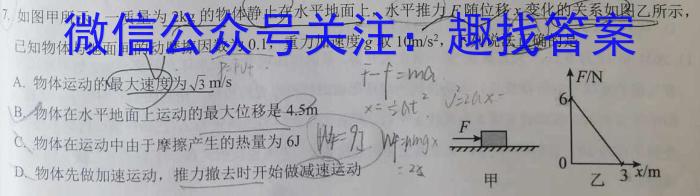 7. 如图甲所示,一质量为2kg的物体静止在水平地面上,水平推力F随位移x变化的关系如图乙所示,
已知物体与地面间的动摩擦因数为0.1,重力加速度g取10m/s²,下列说法正确的是
微信公众号关注:趣找答案
A. 物体运动的最大速度为√3 m/s
B. 物体在水平地面上运动的最大位移是 4.5m
C. 物体在运动中由于摩擦产生的热量为 6J
D. 物体先做加速运动,推力撤去时开始做减速运动
F-f=ma
x=½at²
v²=2ax
W_F=9J
F
甲
F/N
6
0
3
x/m
乙